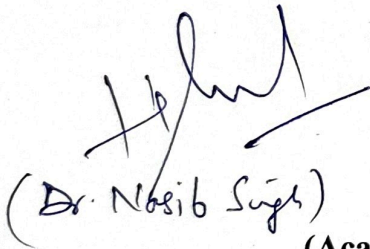 (Dr. Nasib Singh)
(Aca